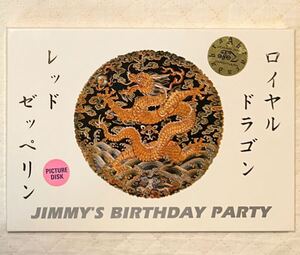 ロイヤル
ドラゴン
レッド
ゼッペリン
PICTURE
DISK
JIMMY'S BIRTHDAY PARTY